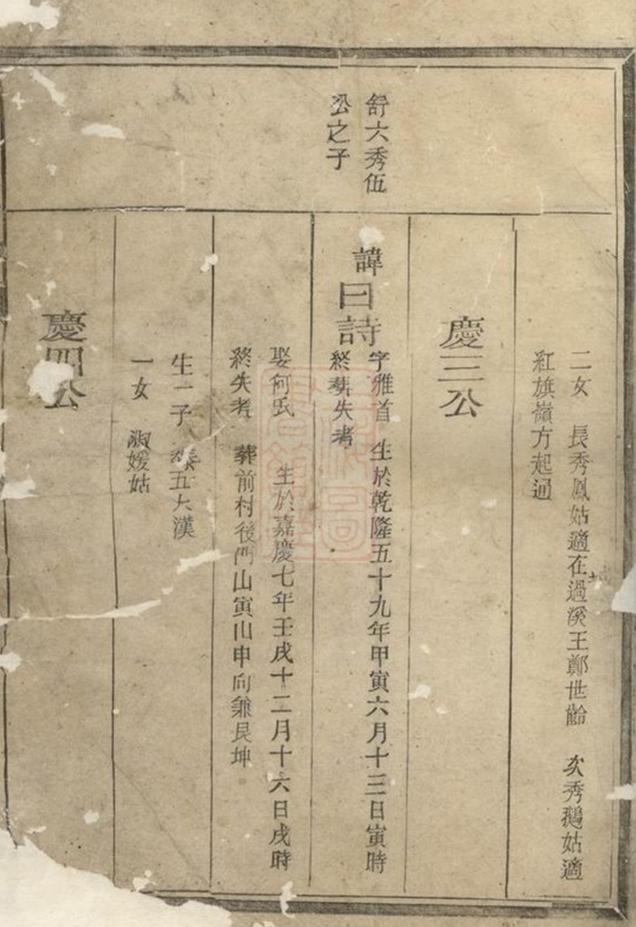 二女 長秀鳳姑適在過溪王鄭世齡 次秀鵝姑適
紅旗嶺方起通
慶三公
舒六秀伍
公之子
諱曰詩
字雅首 生於乾隆五十九年甲寅六月十三日寅時
終葬失考
娶何氏 生於嘉慶七年壬戌十二月十六日戌時
終失考 葬前村後門山寅山申向兼艮坤
生一子 五大漢
一女 淑媛姑
慶四公